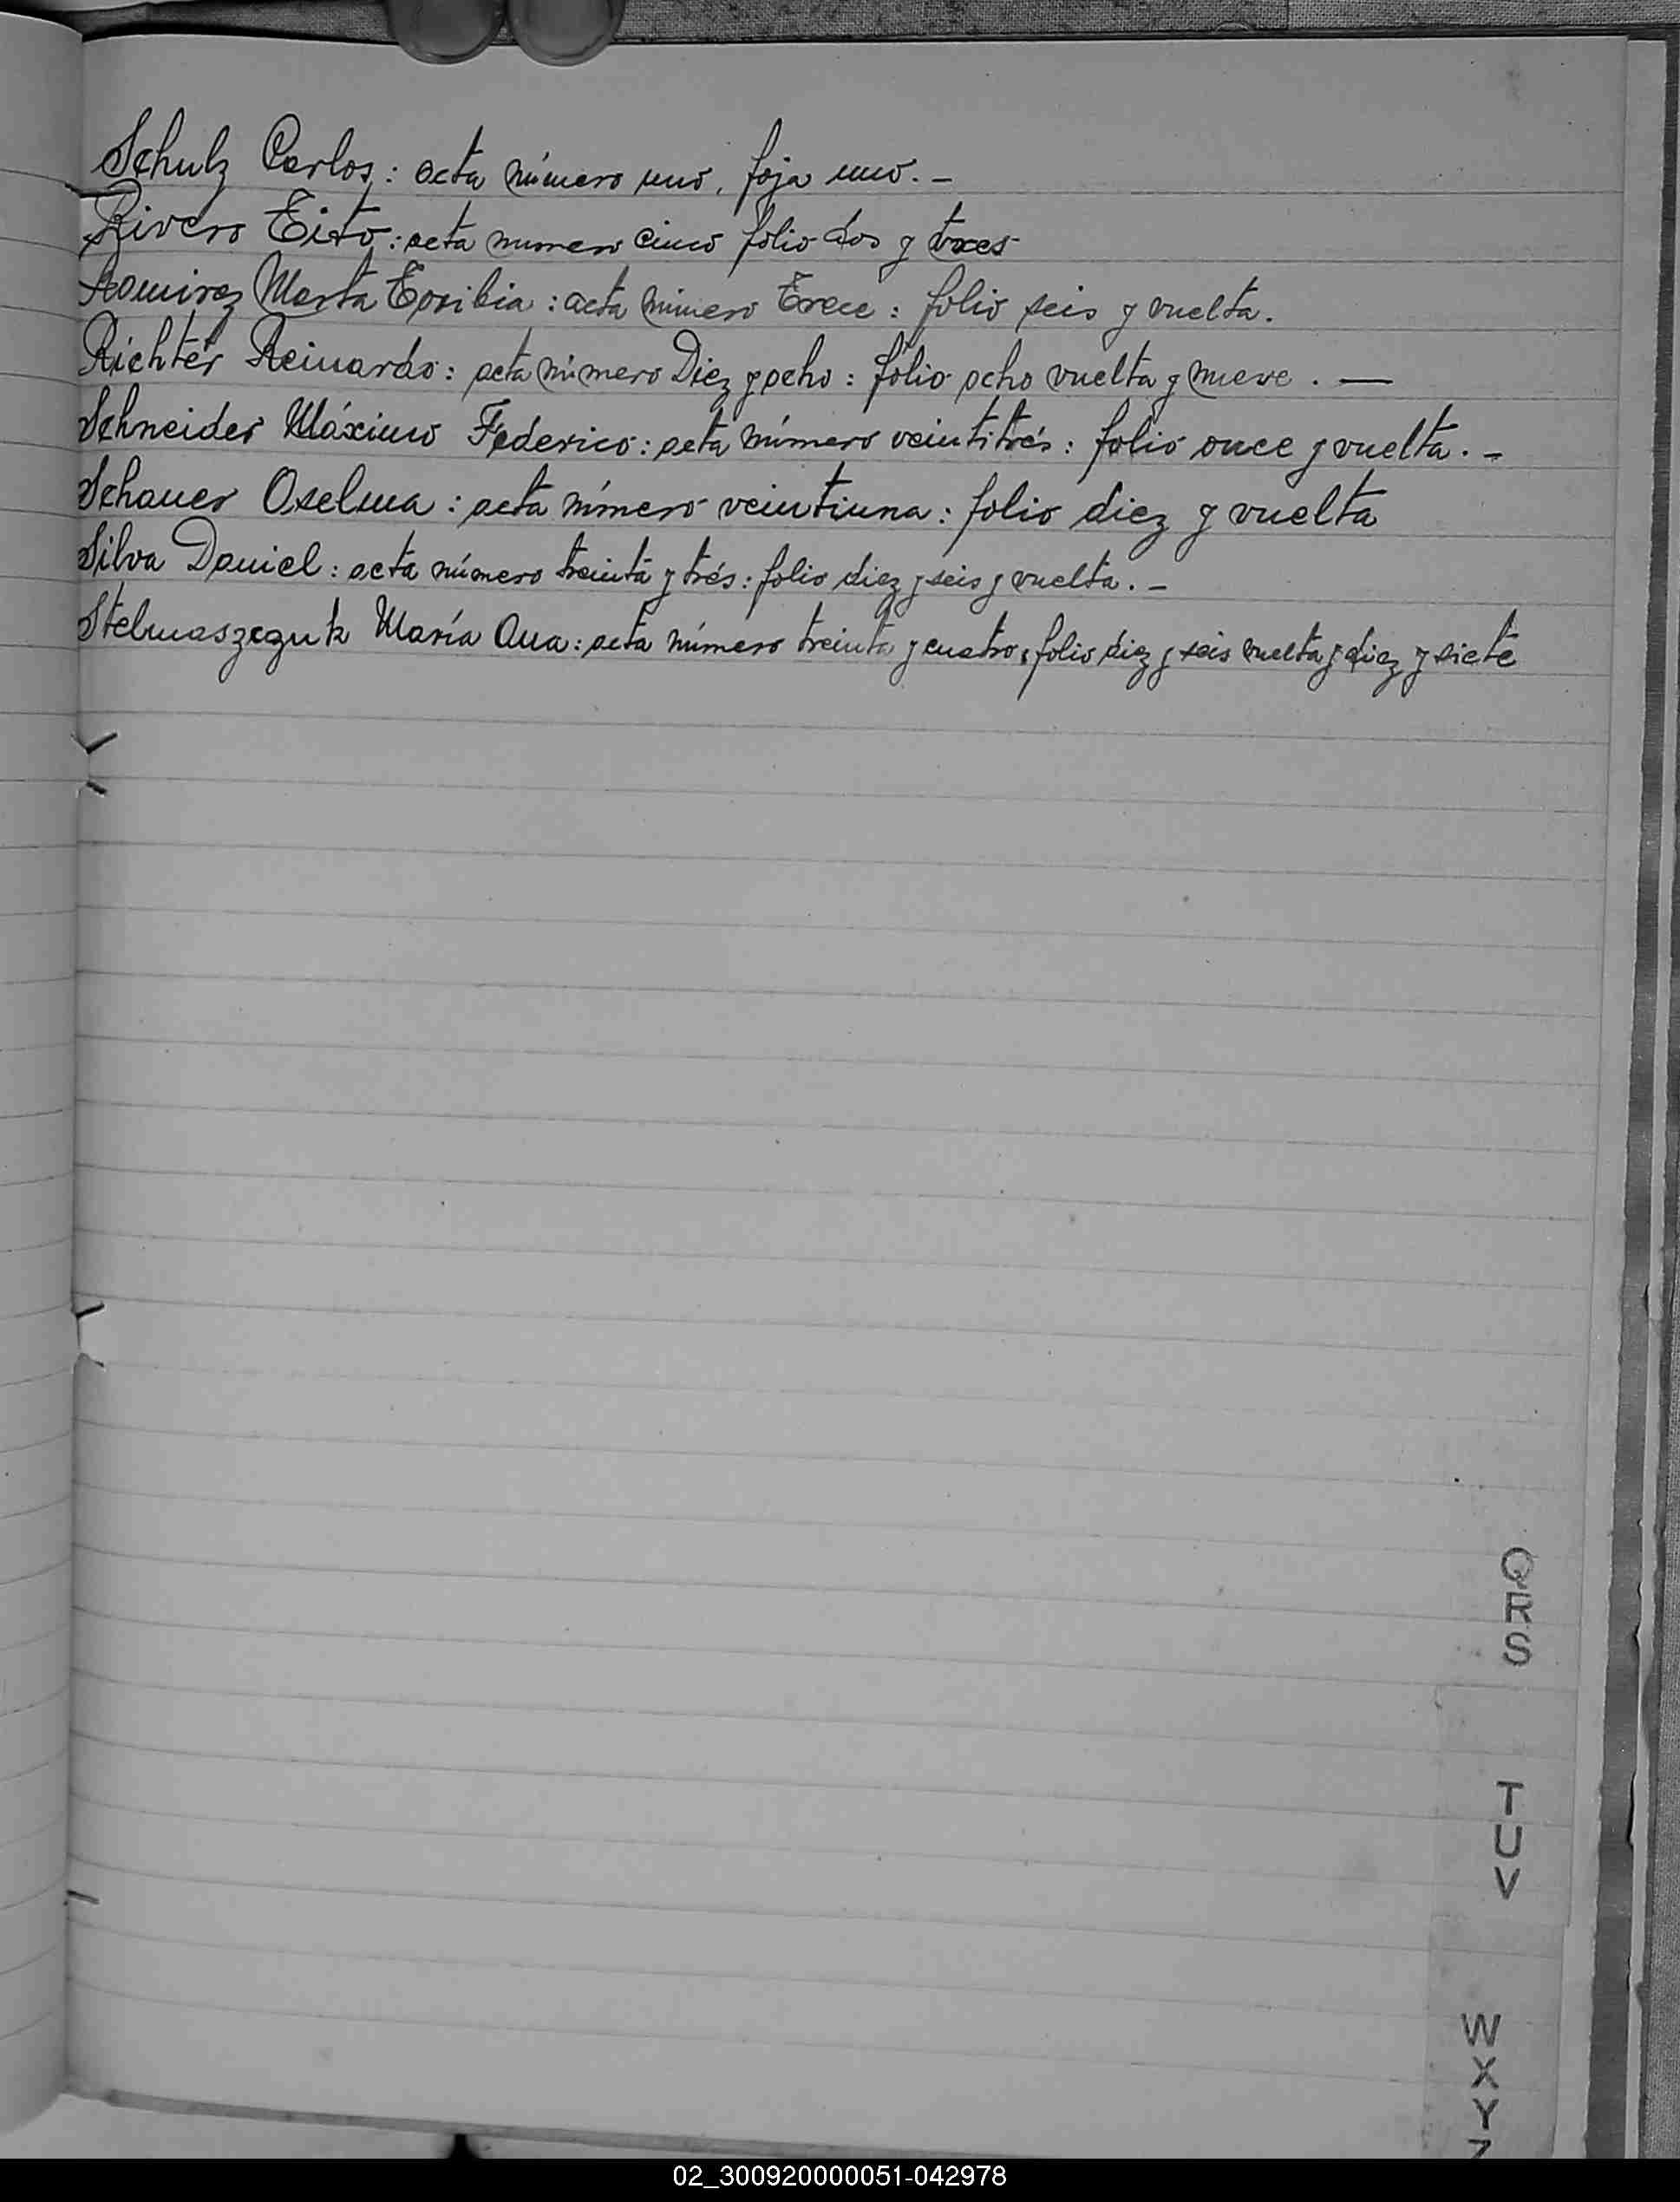 Schulz Carlos: acta número uno, foja uno. —
Rivero Tito: acta numero cinco folio dos y tres
Ramirez Marta Toribia: acta número Trece: folio seis y vuelta.
Richter Reinardo: acta número Diez y ocho: folio ocho vuelta y nueve. —
Schneider Máximo Federico: acta número veintitrés: folio once y vuelta. —
Schauer Oselma: acta número veintiuna: folio diez y vuelta
Silva Daniel: acta número treinta y trés: folio diez y seis y vuelta. —
Stelmaszczuk María Ana: acta número treinta y cuatro, folio diez y seis vuelta y diez y siete
Q
R
S
T
U
V
W
X
Y
Z
02_300920000051-042978